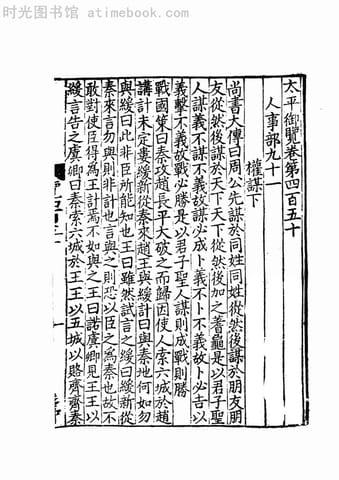 时光图书馆 - atimebook.com
太平御覽卷第四百五十
人事部九十一
權謀下
尚書大傳曰周公先謀於同姓同姓從然後謀於朋友朋
友從然後謀於天下天下從然後加之蓍龜是以君子聖
人謀義不謀不義故謀必成卜義不卜不義故卜必吉以
義擊不義故戰必勝是以君子聖人謀則成戰則勝
戰國策曰秦攻趙長平大破之而歸因使人索六城於趙
講計未定婁緩新從秦來趙王與緩計曰與秦地何如勿
與緩曰此非臣所能知也王曰雖然試言之緩曰緩新從
秦來言勿與則非計也言與之則恐以臣之為秦也故不
敢對使臣得為王計焉不如與之王曰諾虞卿見王王以
緩言告之虞卿曰秦索六城於王王以五城以賂齊齊秦